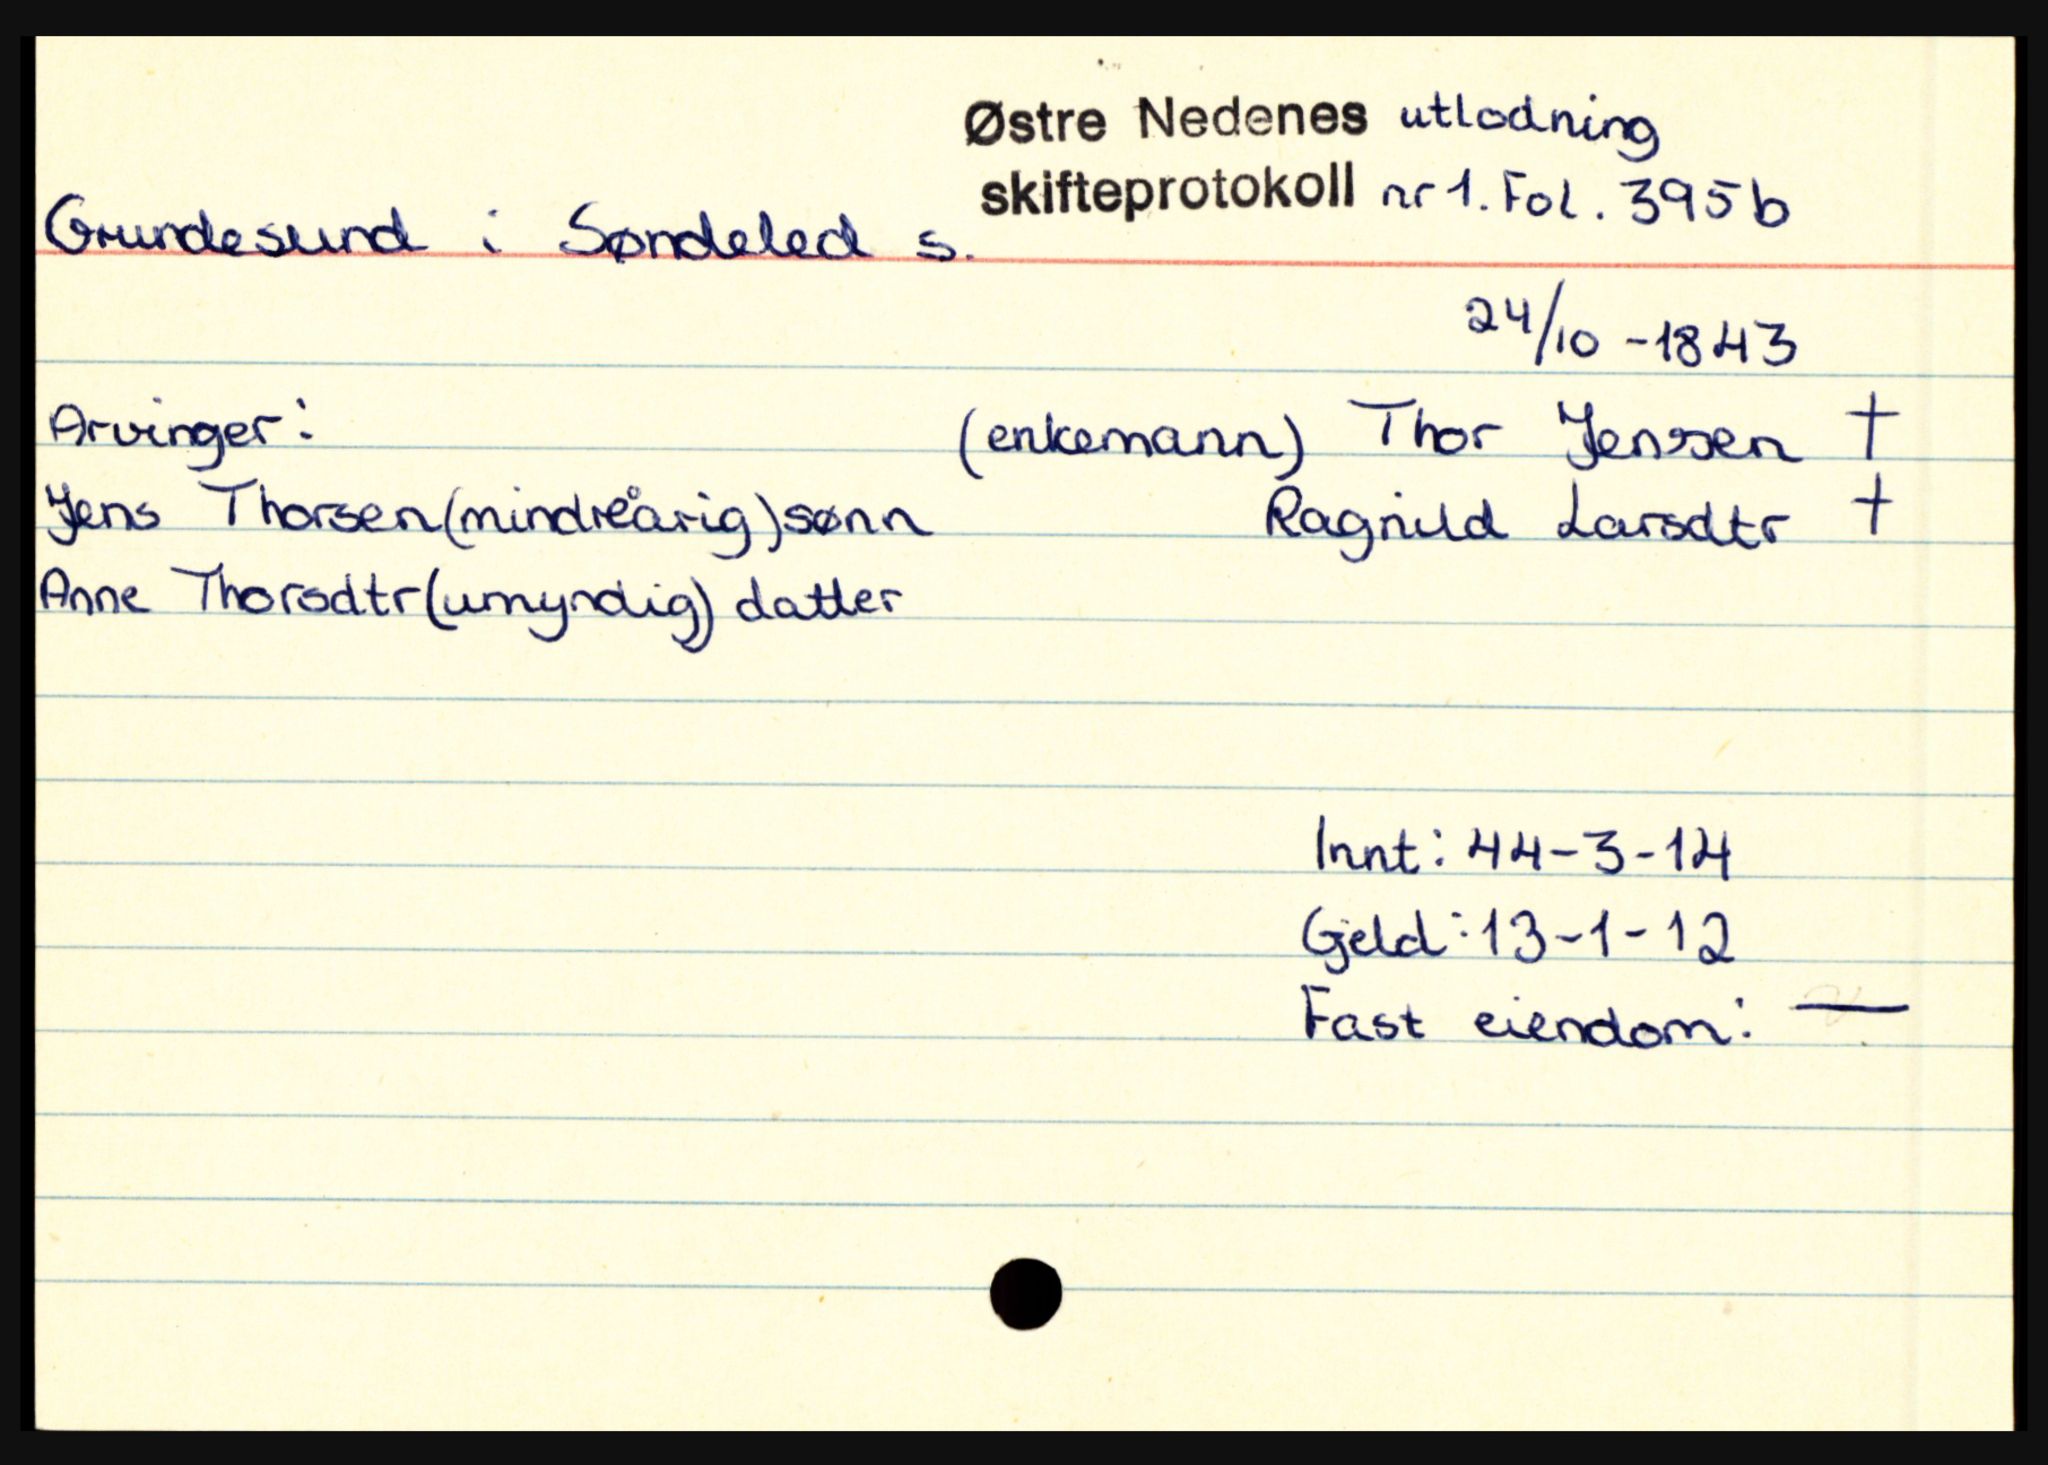 Østre Nedenes utlodning
skifteprotokoll nr 1. Fol. 395b
Grundesund i Søndeled s.
24/10 -1843
Arvinger: (enkemann) Thor Jenssen †
Jens Thorsen (mindreårig) sønn Ragnild Larsdtr †
Anne Thorsdtr (umyndig) datter
Innt: 44-3-14
Gjeld: 13-1-12
Fast eiendom: —